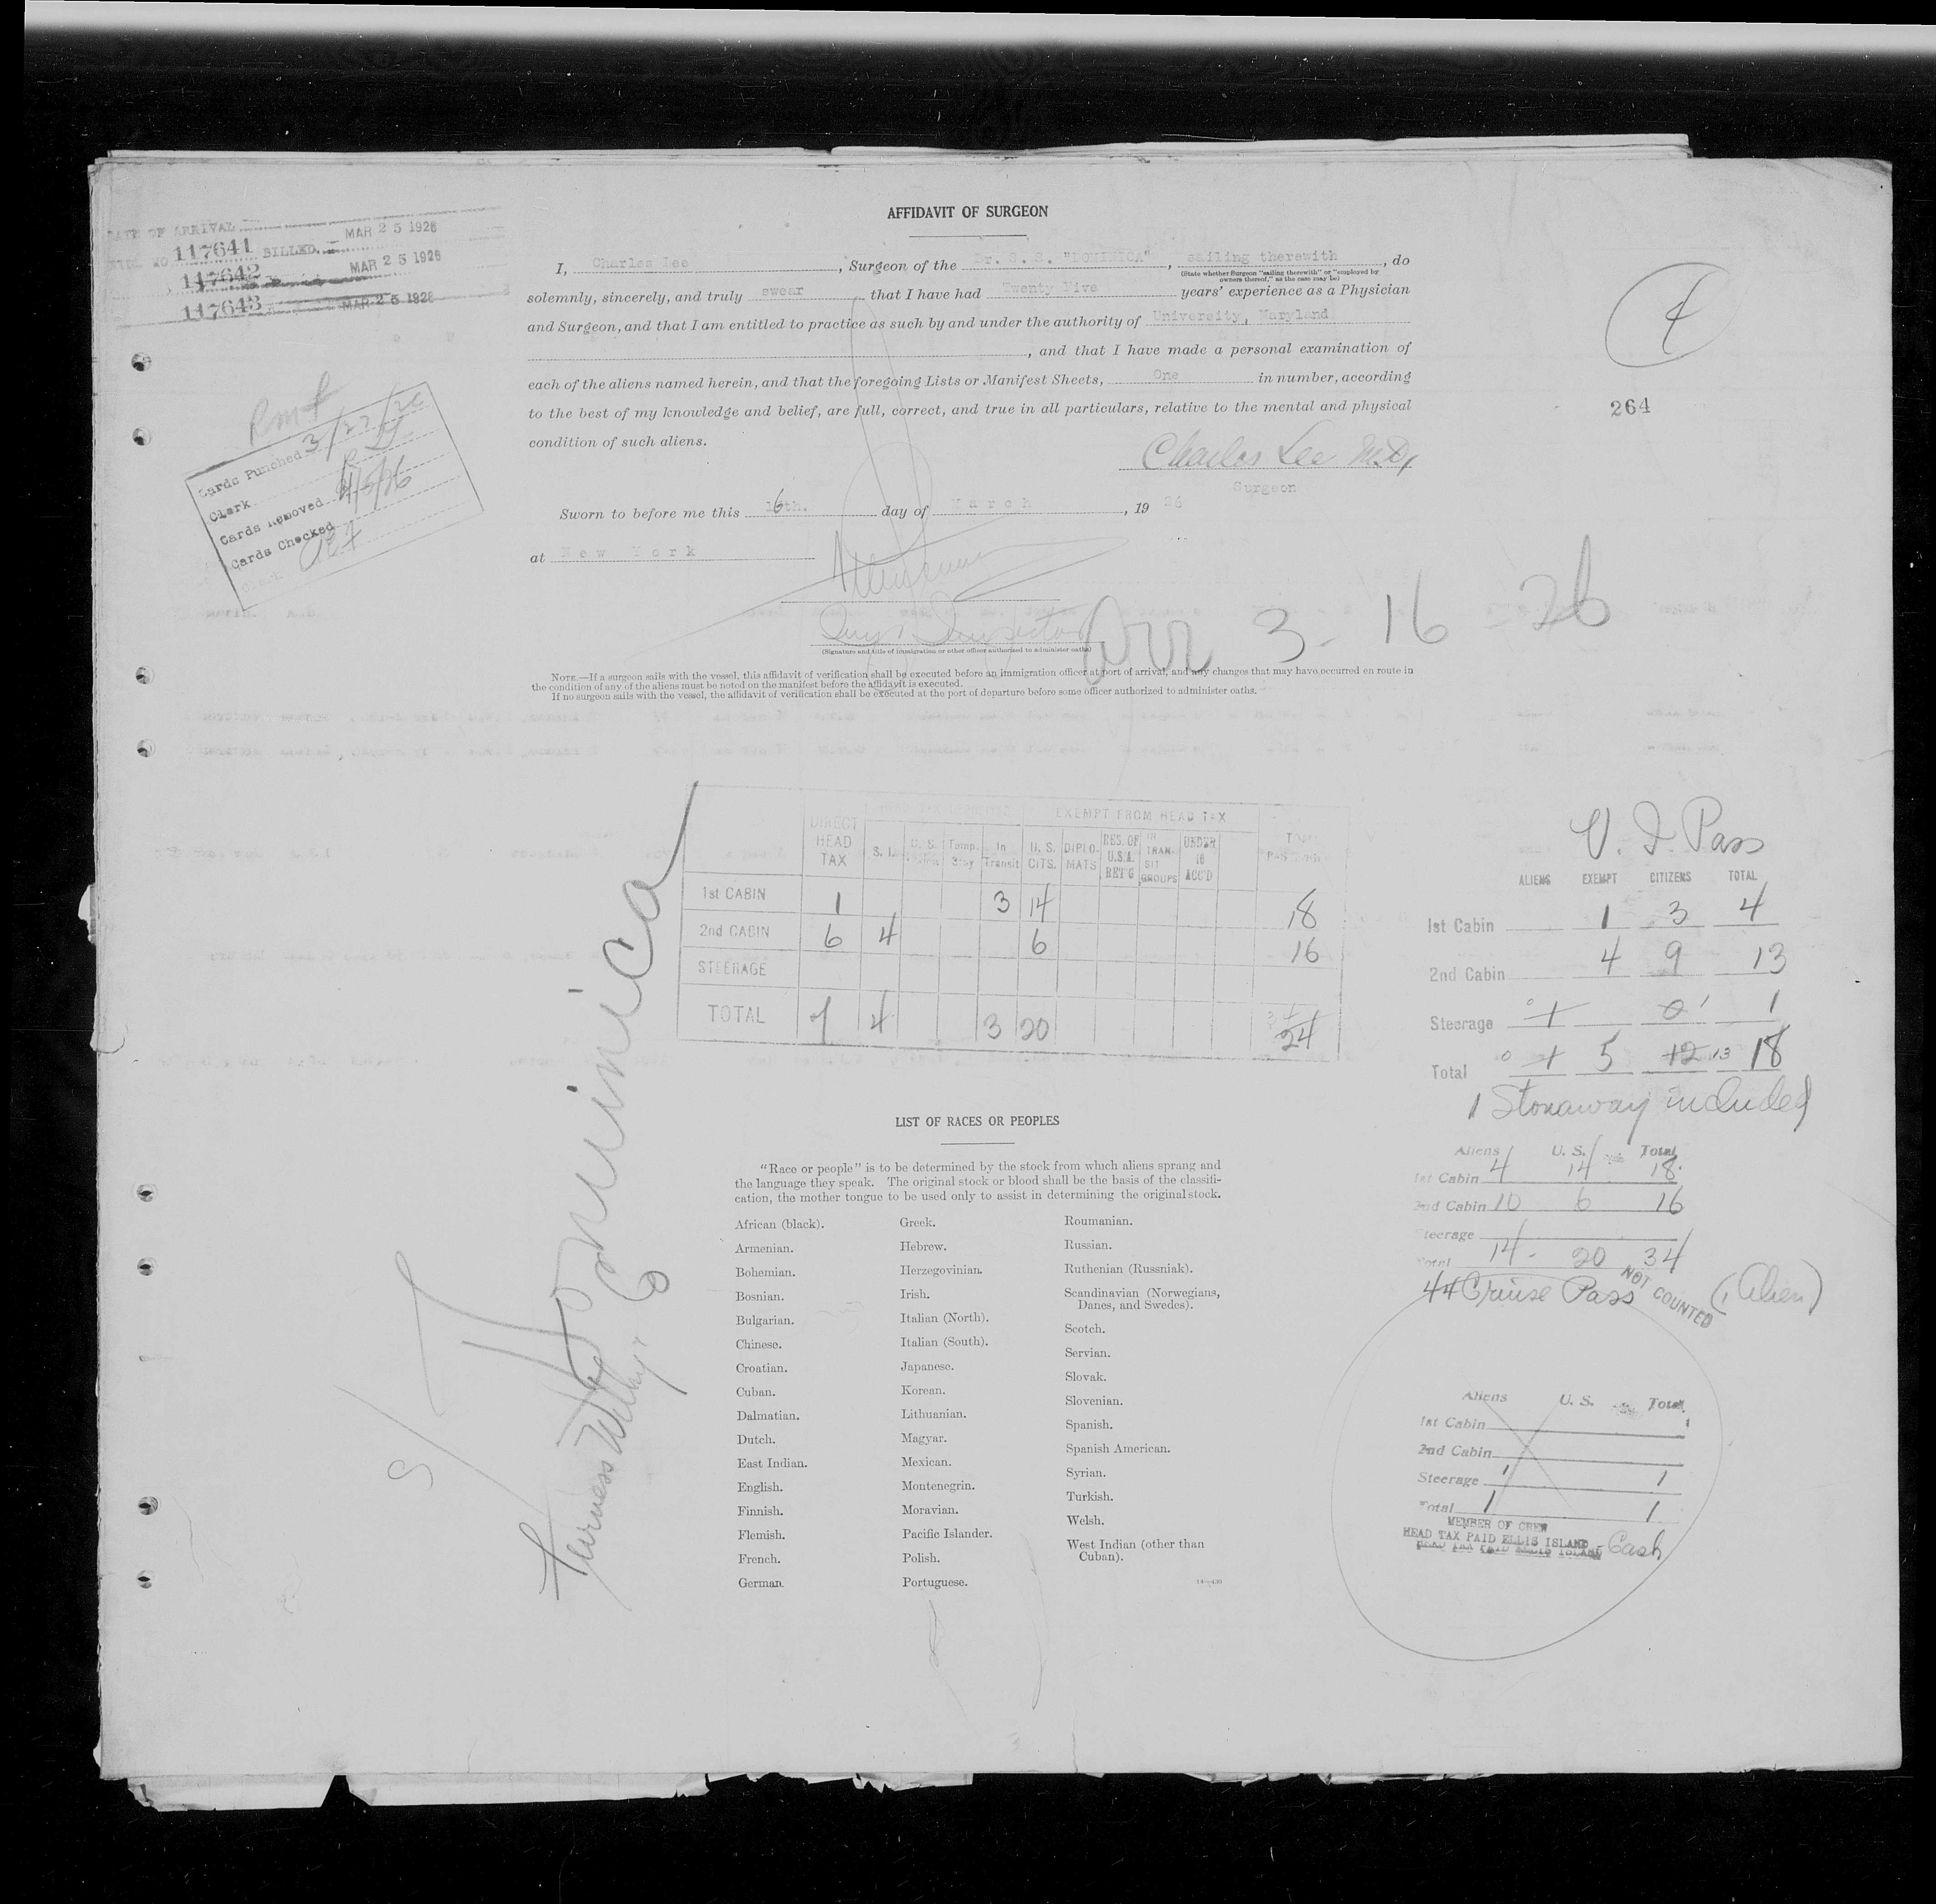 AFFIDAVIT OF SURGEON
DATE OF ARRIVAL MAR 25 1926
117641 BILLED MAR 25 1926
117642 MAR 25 1926
117643 MAR 25 1926
I, Charles Lee, Surgeon of the Br. S. S. "DOMINICA", sailing therewith, do
(State whether Surgeon "sailing therewith" or "employed by
owners thereof," as the case may be)
solemnly, sincerely, and truly swear that I have had Twenty Five years' experience as a Physician
and Surgeon, and that I am entitled to practice as such by and under the authority of University, Maryland
, and that I have made a personal examination of
each of the aliens named herein, and that the foregoing Lists or Manifest Sheets, One in number, according
to the best of my knowledge and belief, are full, correct, and true in all particulars, relative to the mental and physical
condition of such aliens.
264
Charles Lee M.D,
Surgeon
Sworn to before me this 16th. day of March, 19 26
at New York
(Signature and title of immigration or other officer authorized to administer oaths)
Arr 3-16-26
Cards Punched
Clerk
Cards Removed
Cards Checked
NOTE.—If a surgeon sails with the vessel, this affidavit of verification shall be executed before an immigration officer at port of arrival, and any changes that may have occurred en route in
the condition of any of the aliens must be noted on the manifest before the affidavit is executed.
If no surgeon sails with the vessel, the affidavit of verification shall be executed at the port of departure before some officer authorized to administer oaths.
EXEMPT FROM HEAD TAX
DIRECT HEAD TAX S. I. U. S. Temp. Stay In Transit U. S. CITS. DIPLOMATS RES. OF U.S.A. RET'G IN TRANSIT GROUPS UNDER 16 ACC'D
1st CABIN 1 3 14 18
2nd CABIN 6 4 6 16
STEERAGE
TOTAL 7 4 3 20 34
V. I. Pass
ALIENS EXEMPT CITIZENS TOTAL
1st Cabin 1 3 4
2nd Cabin 4 9 13
Steerage 0 1 0 1 1
Total 0 1 5 12 13 18
1 Stowaway included
Aliens U. S. Total
1st Cabin 4 14 18
2nd Cabin 10 6 16
Steerage
Total 14 - 20 34
44 Cruise Pass NOT COUNTED (1 Alien)
Aliens U. S. Total
1st Cabin
2nd Cabin
Steerage 1 1
Total 1 1
MEMBER OF CREW
HEAD TAX PAID ELLIS ISLAND - Cash
HEAD TAX PAID ELLIS ISLAND
Dominica
Furness Withy Co
LIST OF RACES OR PEOPLES
"Race or people" is to be determined by the stock from which aliens sprang and
the language they speak. The original stock or blood shall be the basis of the classifi-
cation, the mother tongue to be used only to assist in determining the original stock.
African (black).
Armenian.
Bohemian.
Bosnian.
Bulgarian.
Chinese.
Croatian.
Cuban.
Dalmatian.
Dutch.
East Indian.
English.
Finnish.
Flemish.
French.
German.
Greek.
Hebrew.
Herzegovinian.
Irish.
Italian (North).
Italian (South).
Japanese.
Korean.
Lithuanian.
Magyar.
Mexican.
Montenegrin.
Moravian.
Pacific Islander.
Polish.
Portuguese.
Roumanian.
Russian.
Ruthenian (Russniak).
Scandinavian (Norwegians,
Danes, and Swedes).
Scotch.
Servian.
Slovak.
Slovenian.
Spanish.
Spanish American.
Syrian.
Turkish.
Welsh.
West Indian (other than
Cuban).